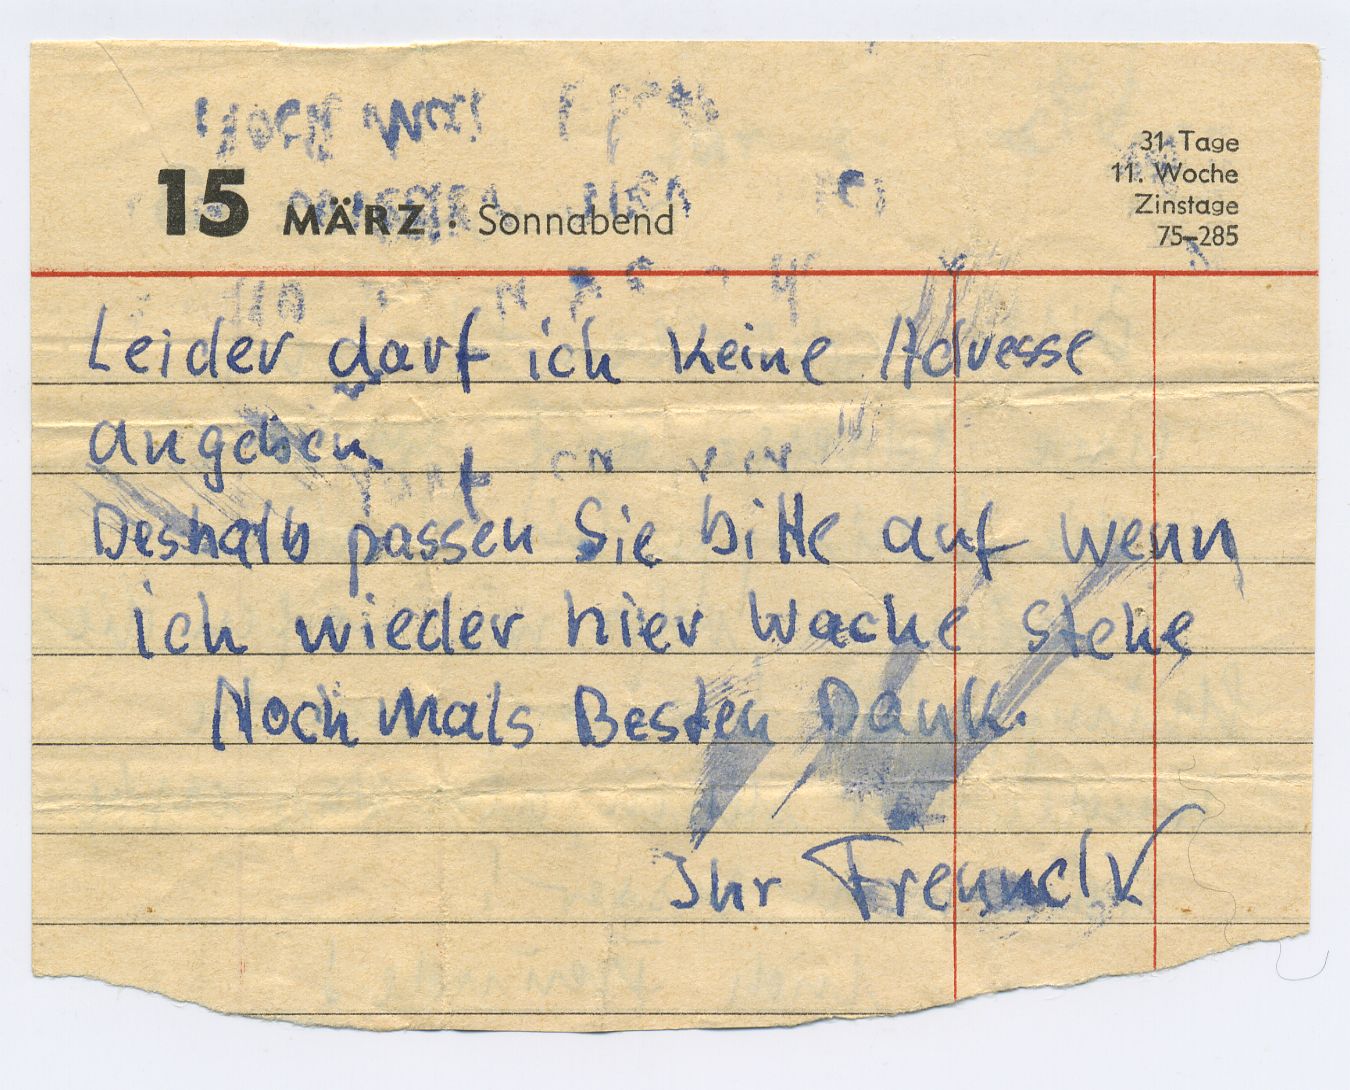 31 Tage
11. Woche
Zinstage
75-285
15 MÄRZ · Sonnabend
Leider darf ich keine Adresse
angeben.
Deshalb passen Sie bitte auf wenn
ich wieder hier Wache stehe
Noch mals Besten Dank.
Ihr Freund